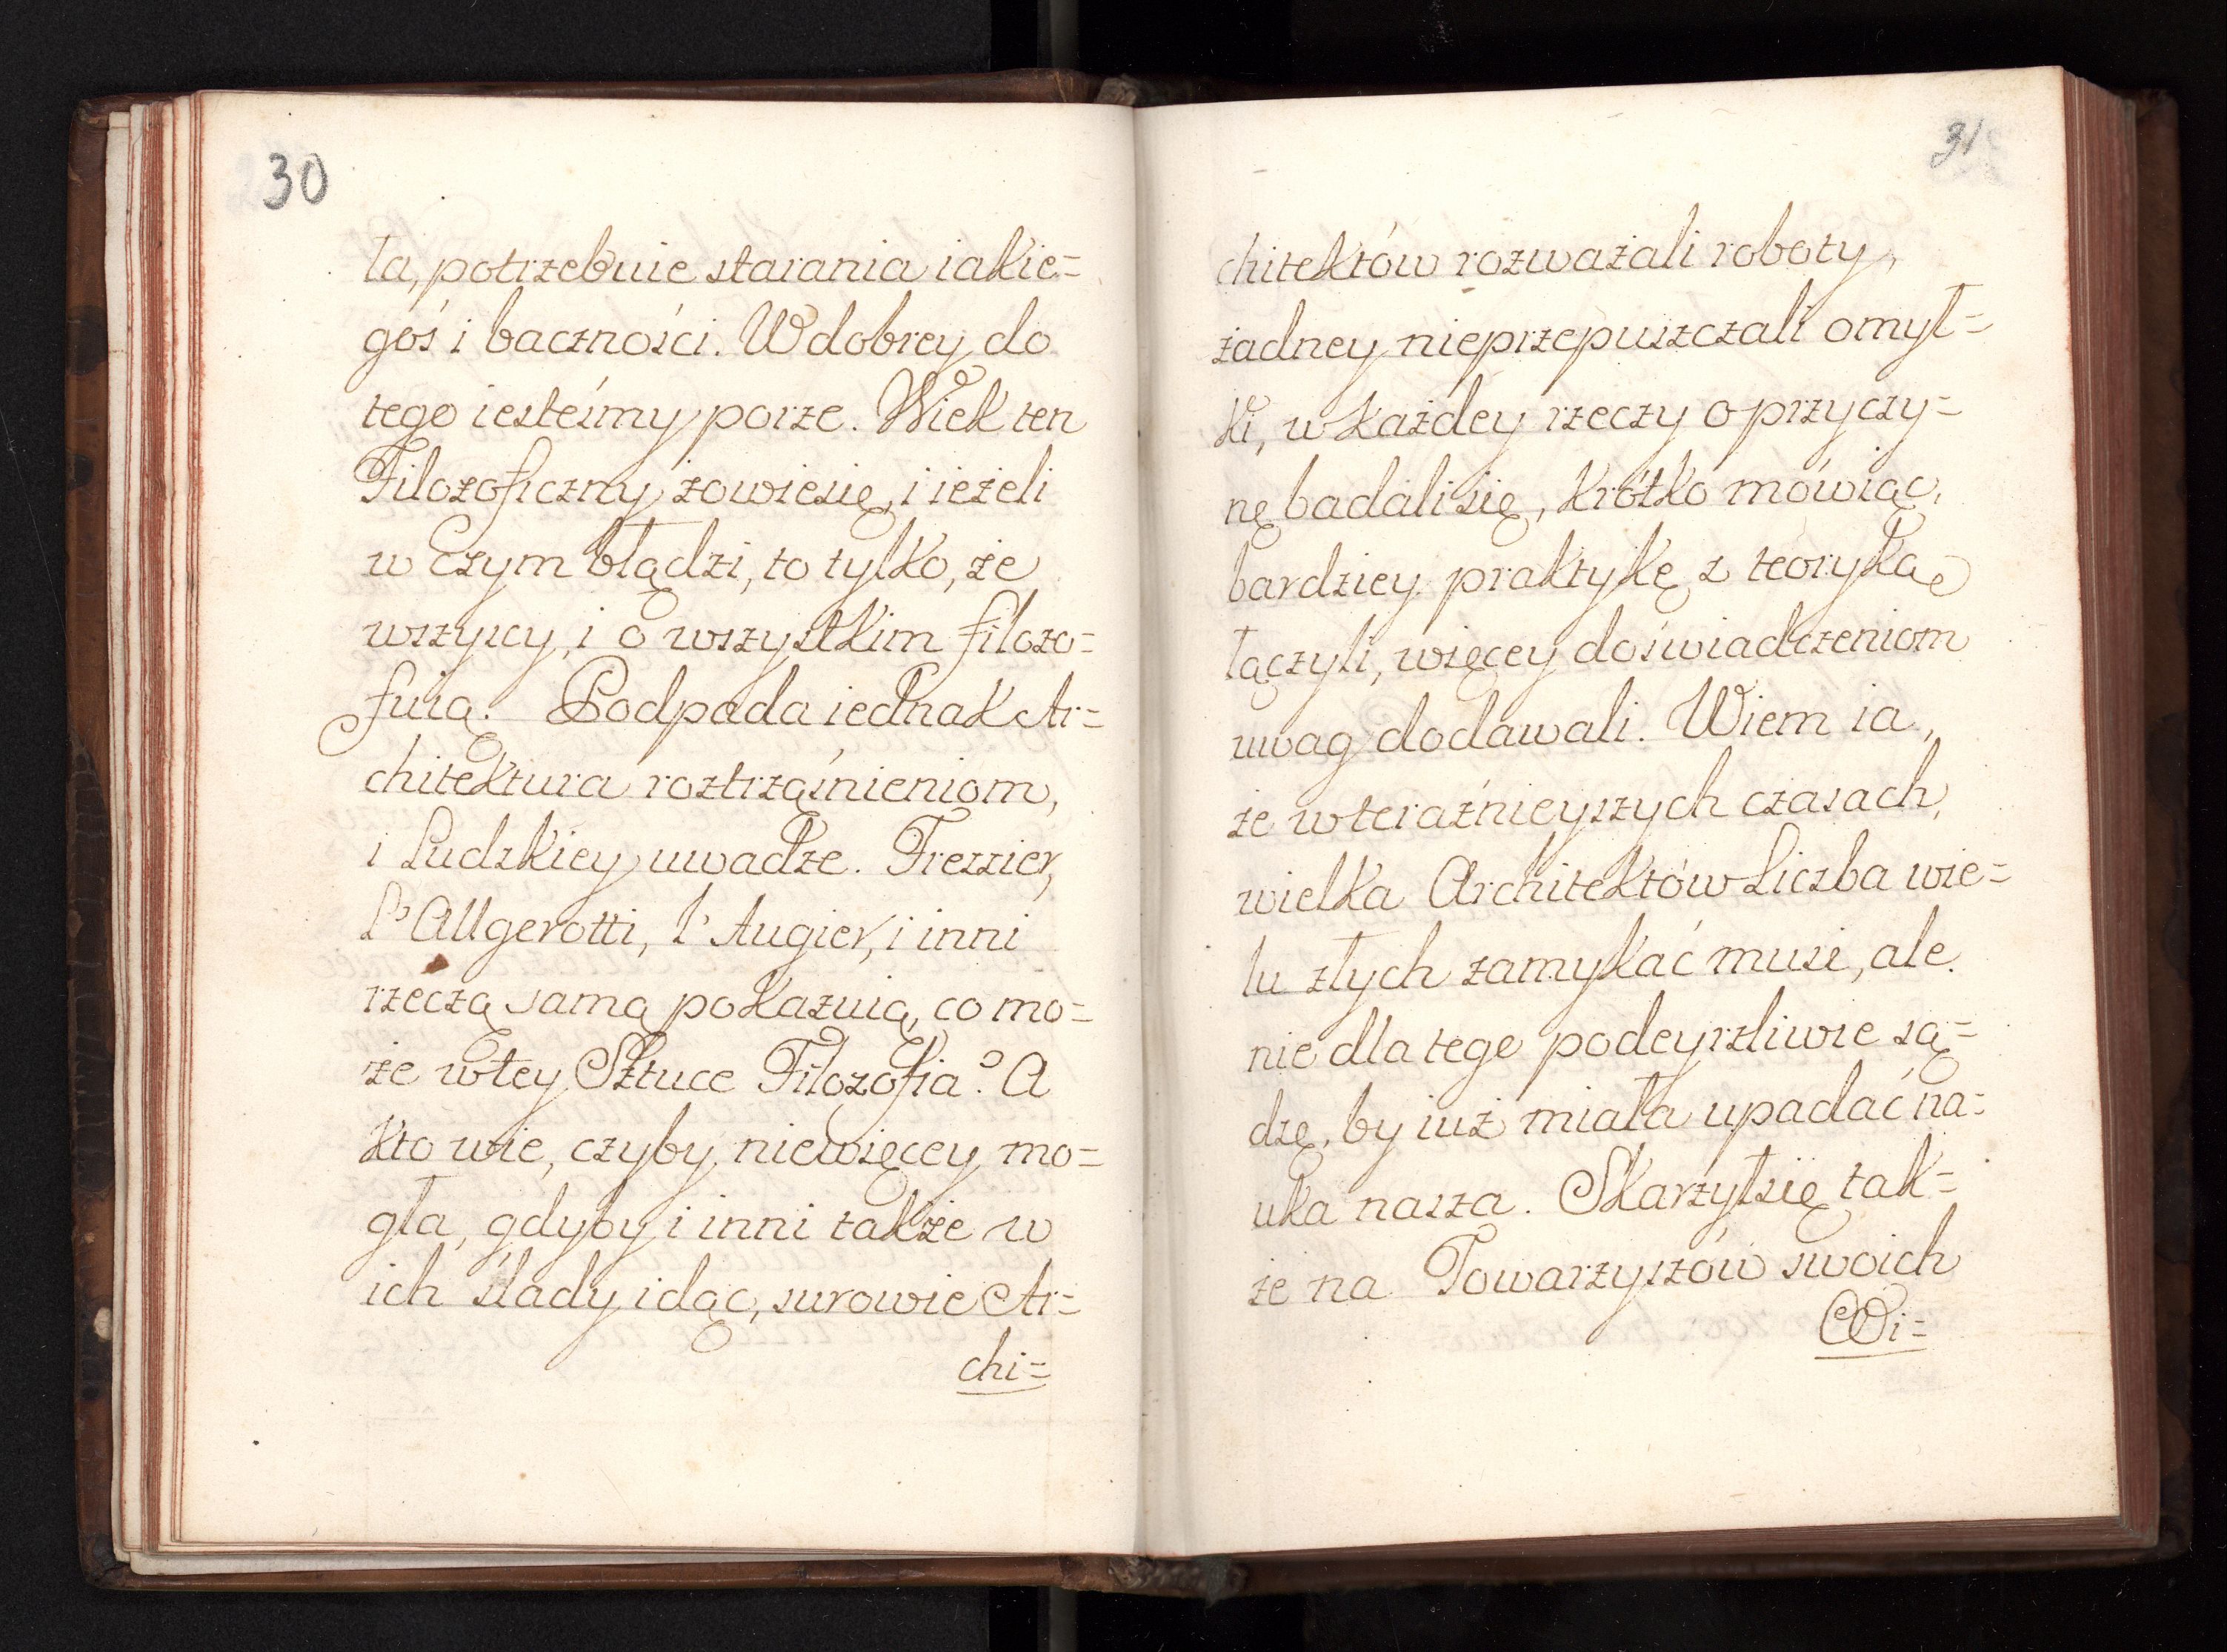 30
ła, potrzebuie starania iakie=
goś i baczności. W dobrey do
tego iesteśmy porze. Wiek ten
Filozoficzny zowiesię, i ieżeli
w czym błądzi, to tylko, że
wszyscy, i o wszystkim filozo=
fuią. Podpada iednak Ar=
chitektura roztrząśnieniom,
i Ludzkiey uwadze. Frezzier,
L'Allgerotti, l'Augier, i inni
rzeczą samą pokazuią, co mo=
że w tey Sztuce Filozofia? A
kto wie, czyby niewięcey mo=
gła, gdyby i inni także w
ich ślady idąc, surowie Ar=
chi=
31
chitektów rozważali roboty,
żadney nieprzepuszczali omył=
ki, w każdey rzeczy o przyczy=
nę badali się, krótko mówiąc,
bardziey praktykę z teoryką
łączyli, więcey doświadczeniom
uwag dodawali. Wiem ia,
że w teraźnieyszych czasach,
wielka Architektów Liczba wie=
lu złych zamykać musi, ale
nie dla tego podeyrzliwie są=
dzę, by iuż miała upadać na=
uka nasza. Skarżyłsię tak=
że na Towarzyszów swoich
Wi=